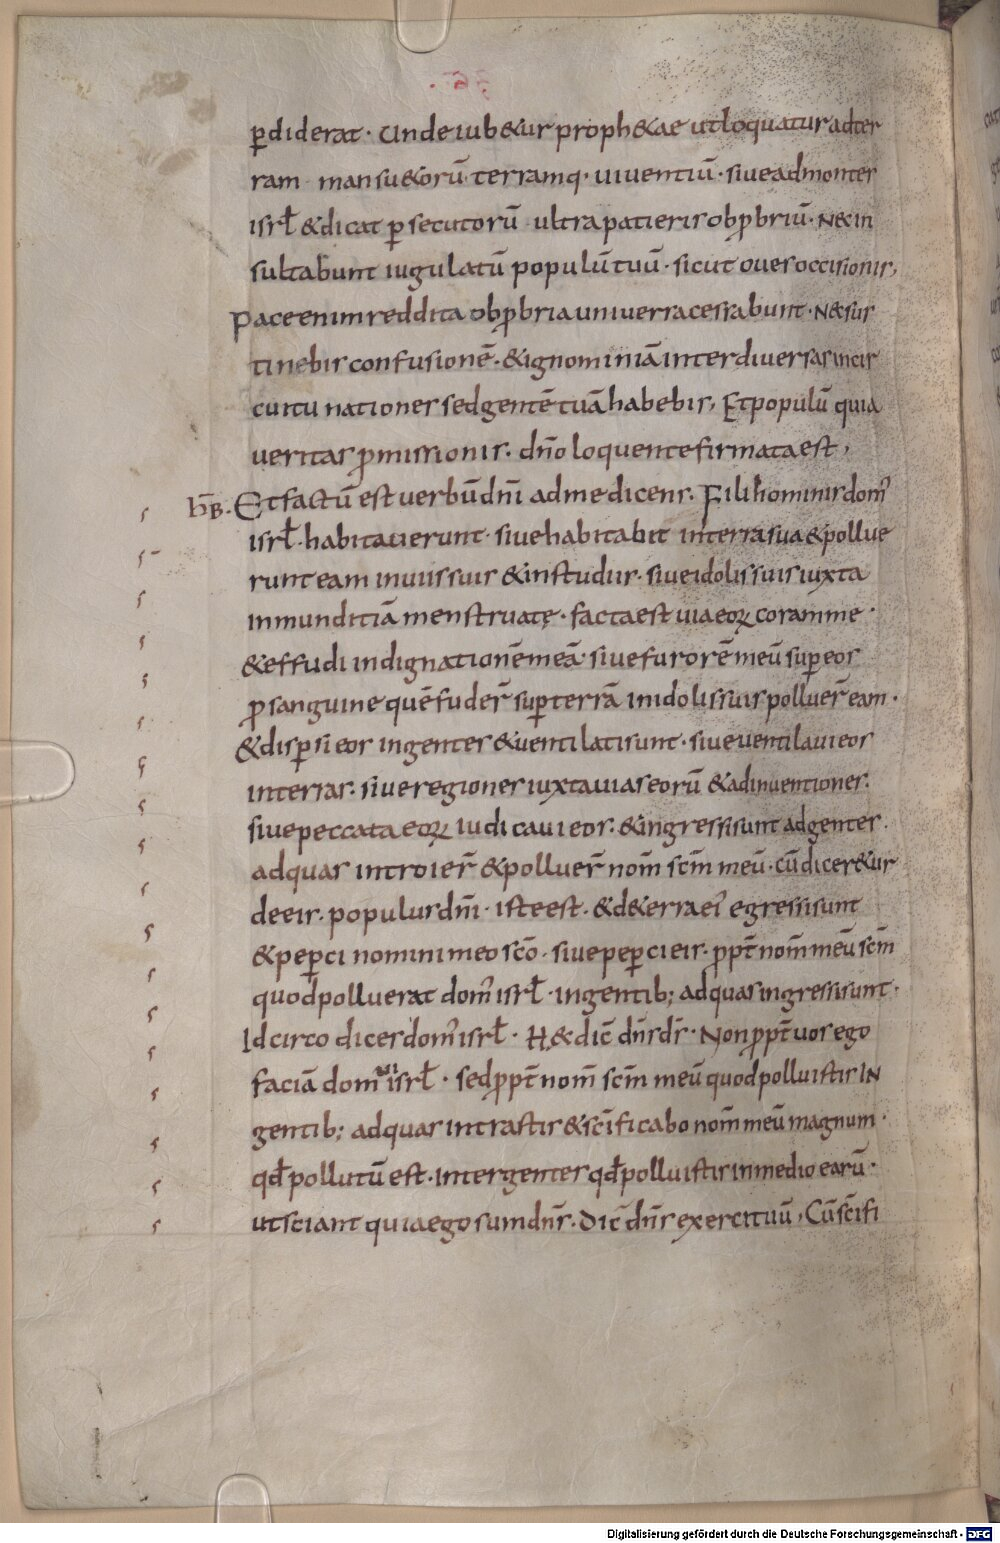 ꝑdiderat · Unde iub&ur proph&ae ut loquatur ad ter
ram mansu&orū · terramq · uiuentiū · siue ad montes
isrł & dicat ꝑsecutorū ultra patieris obꝓbriū · N& in
sultabunt iugulatū populū tuū · sicut oues occisionis,
Pace enim reddita obꝓbria uniuersa cessabunt · N& sus
tinebis confusionē · & ignominiā inter diuersas in cir
cuitu nationes sed gentē tuā habebis, Et populū quia
ueritas ꝓmissionis · dn̄o loquente firmata est,
h̄B · Et factū est uerbū dn̄i ad me dicens · Fili hominis dom'
isrł · habitauerunt · siue habitabit in terra sua & pollue
runt eam in uiis suis & in studiis · siue idolis suis iuxta
inmunditiā menstruatę · facta est uia eoꝝ coram me ·
& effudi indignationē meā · siue furorē meū suꝑ eos
ꝓ sanguine quē fuder̄ suꝑ terrā in idolis suis polluer̄ eam ·
& disꝑsi eos in gentes & uentilati sunt · siue uentilaui eos
in terras · siue regiones iuxta uias eorū & adinuentiones ·
siue peccata eoꝝ iudicaui eos · & ingressi sunt ad gentes ·
ad quas introier̄ & polluer̄ nom̄ scm̄ meū · cū dicer&ur
de eis · populus dn̄i · iste est · & de terra ei' egressi sunt
& peꝑci nomini meo scō · siue peꝑci eis · ꝓpt̄ nom̄ meū scm̄
quod polluerat dom' isrł · in gentib; ad quas ingressi sunt ·
Idcirco dices dom' isrł · H & dic̄ dn̄s ds̄ · Non ꝓpt̄ uos ego
faciā domui isrł · sed ꝓpt̄ nom̄ scm̄ meū quod polluistis IN
gentib; ad quas intrastis & sc̄ificabo nom̄ meū magnum ·
qđ pollutū est · inter gentes qđ polluistis in medio earū ·
ut sciant quia ego sum dn̄s · Dic̄ dn̄s exercituū, Cū sc̄ifi
Digitalisierung gefördert durch die Deutsche Forschungsgemeinschaft - DFG